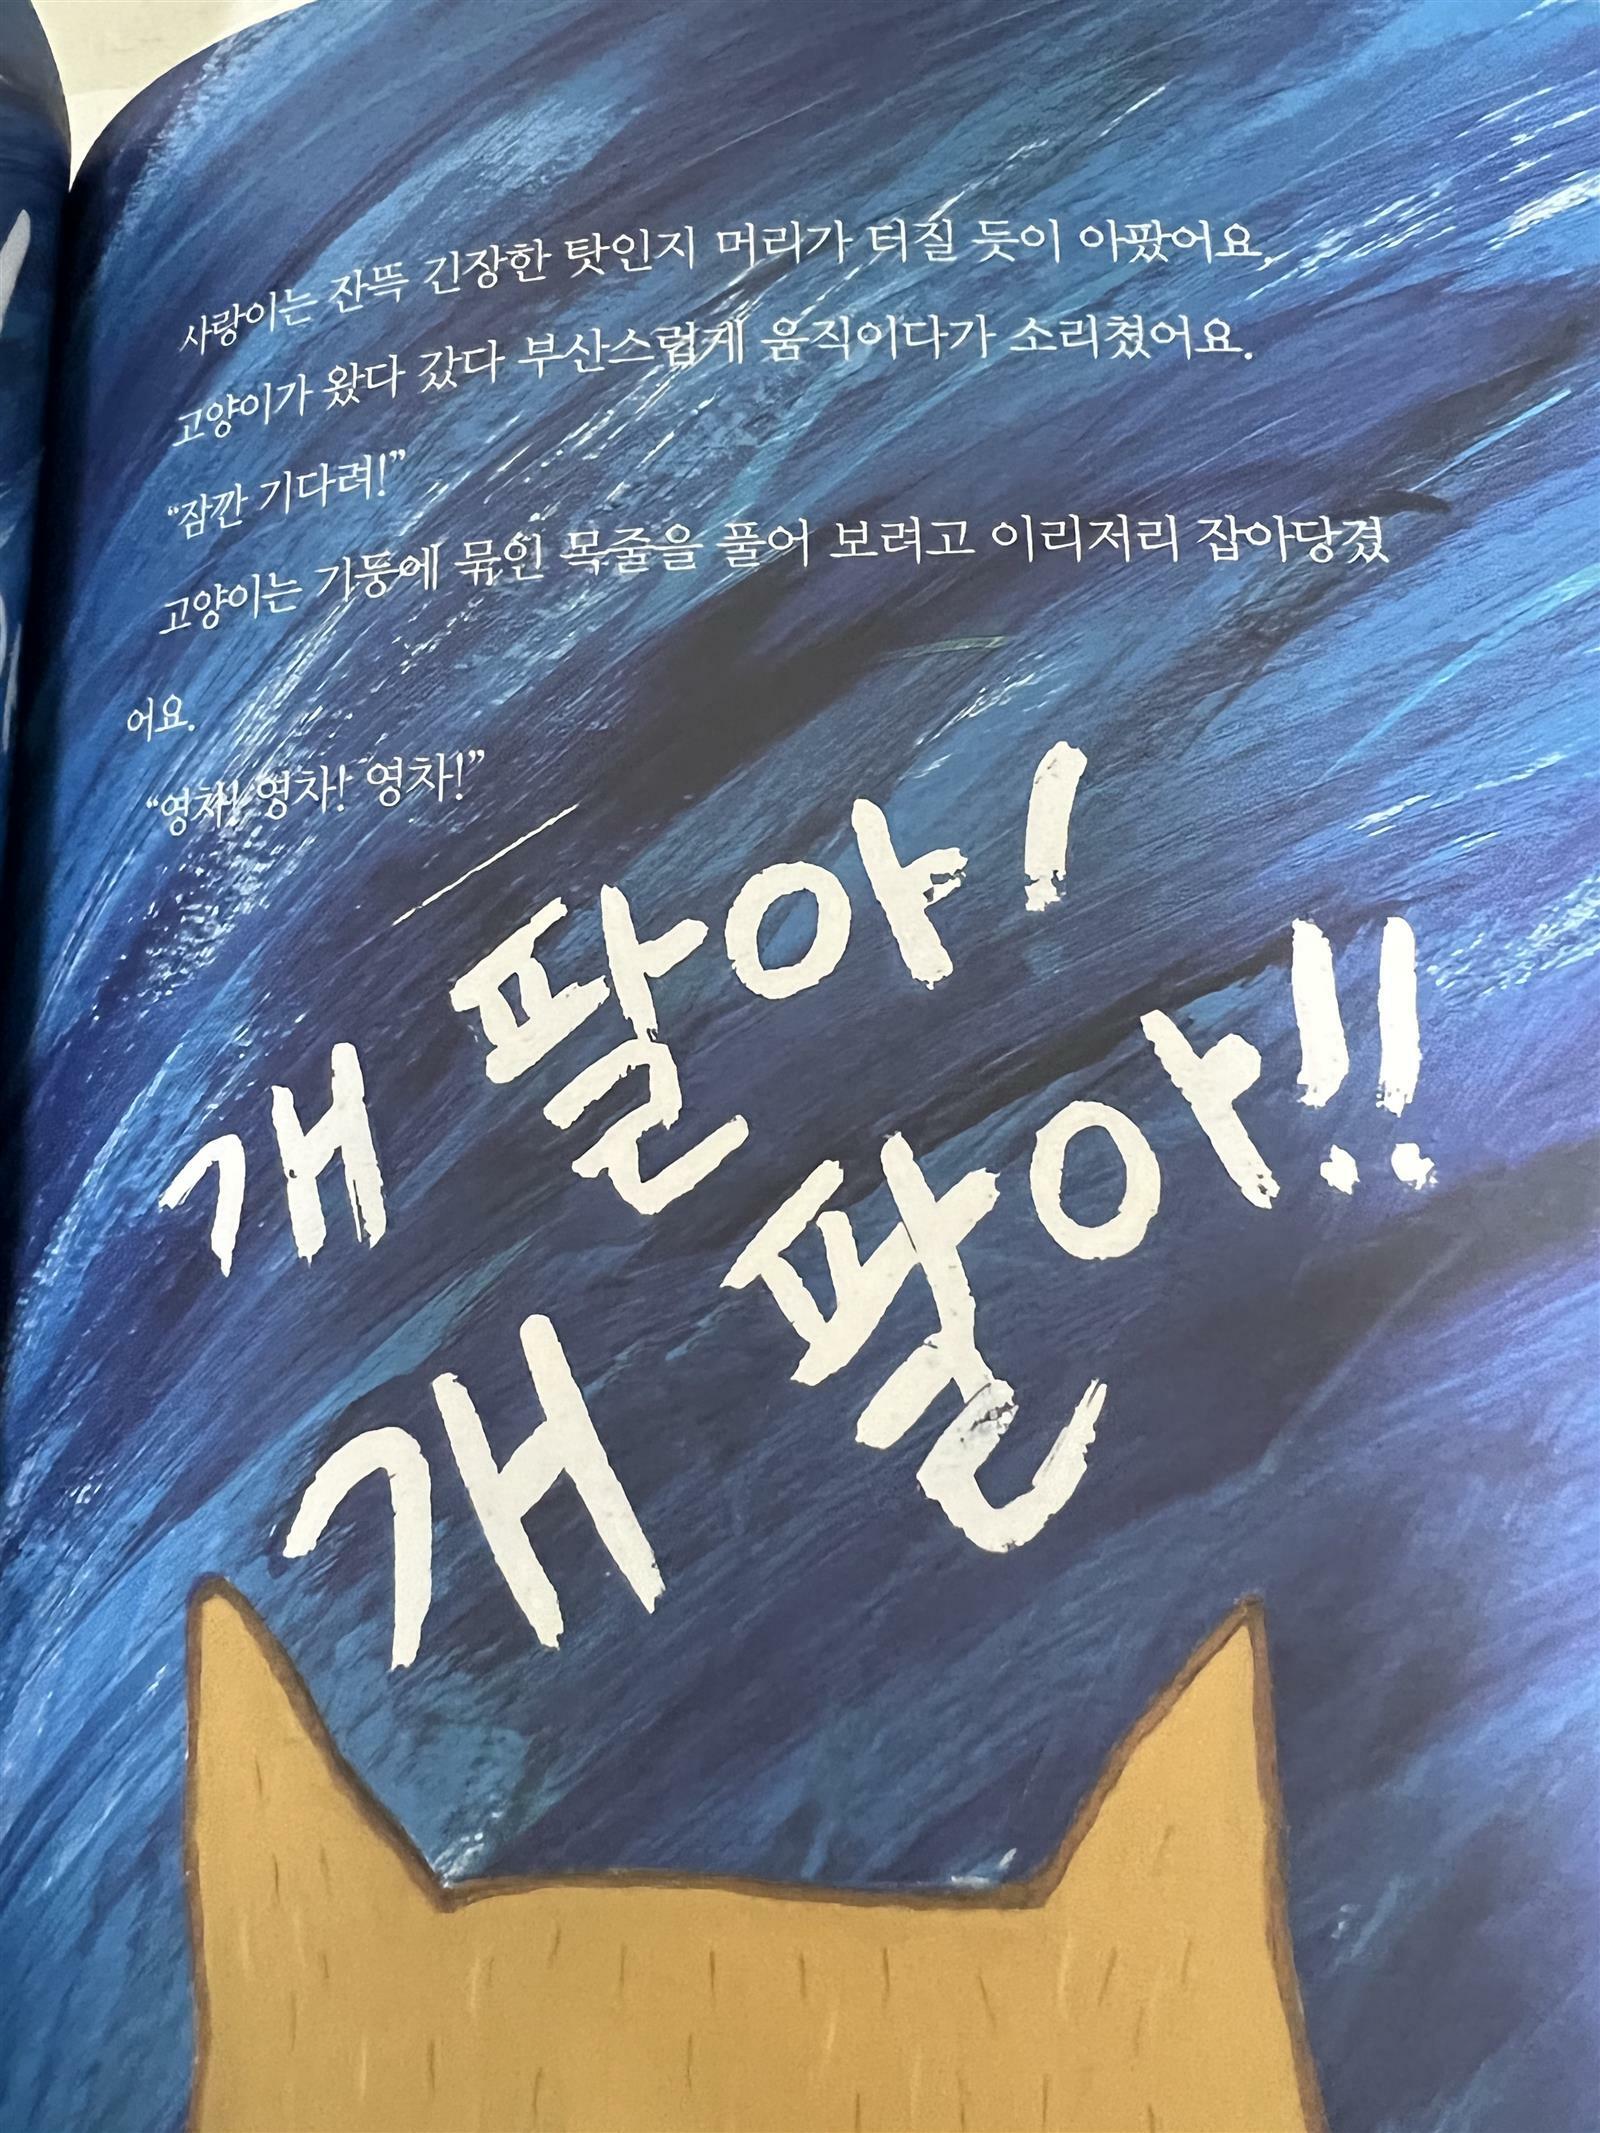 사랑이는 잔뜩 긴장한 탓인지 머리가 터질 듯이 아팠어요.
고양이가 왔다 갔다 부산스럽게 움직이다가 소리쳤어요.
“잠깐 기다려!”
고양이는 기둥에 묶인 목줄을 풀어 보려고 이리저리 잡아당겼
어요.
“영차! 영차! 영차!”
개 팔아!
개 팔아!!